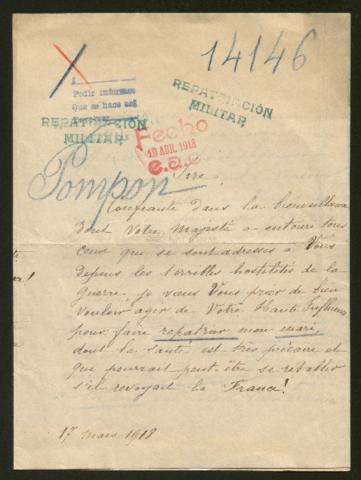 14146
Pedir informes
Que se hace así
REPATRIACIÓN
MILITAR
REPATRIACIÓN
MILITAR
Fecho
19 ABR. 1918
Pompon
Sire,
Confiante dans la bienveillance
dont Votre Majesté a entouré tous
ceux que se sont adressés à Vous
Depuis les terribles hostilités de la
guerre je viens Vous prier de bien
vouloir ager de Votre Haute Influence
pour faire repatrier mon mari,
dont la santé est très précaire et
qui pourrait peut être se rétablir
s'il revoyait la France!
17 mars 1918